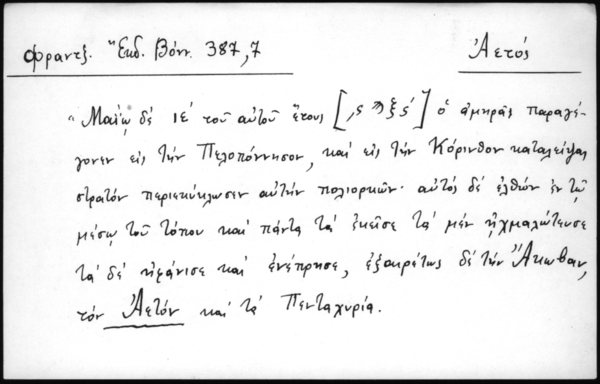 Φραντζ. Ἔκδ. Βόνν. 387,7
Ἀετός
"Μαΐῳ δέ ιε΄ τοῦ αὐτοῦ ἔτους [͵ςϠξς΄] ὁ ἀμηρᾶς παραγέ-
γονεν εἰς τήν Πελοπόννησον, καί εἰς τήν Κόρινθον καταλείψας
στρατόν περιεκύκλωσεν αὐτήν πολιορκῶν· αὐτός δέ ἐλθών ἐν τῷ
μέσῳ τοῦ τόπου καί πάντα τά ἐκεῖσε τά μέν ᾐχμαλώτευσε
τά δέ ἠφάνισε καί ἐνέπρησε, ἐξαιρέτως δέ τήν Ἄκωβαν,
τόν Ἀετόν καί τά Πενταχύρια.